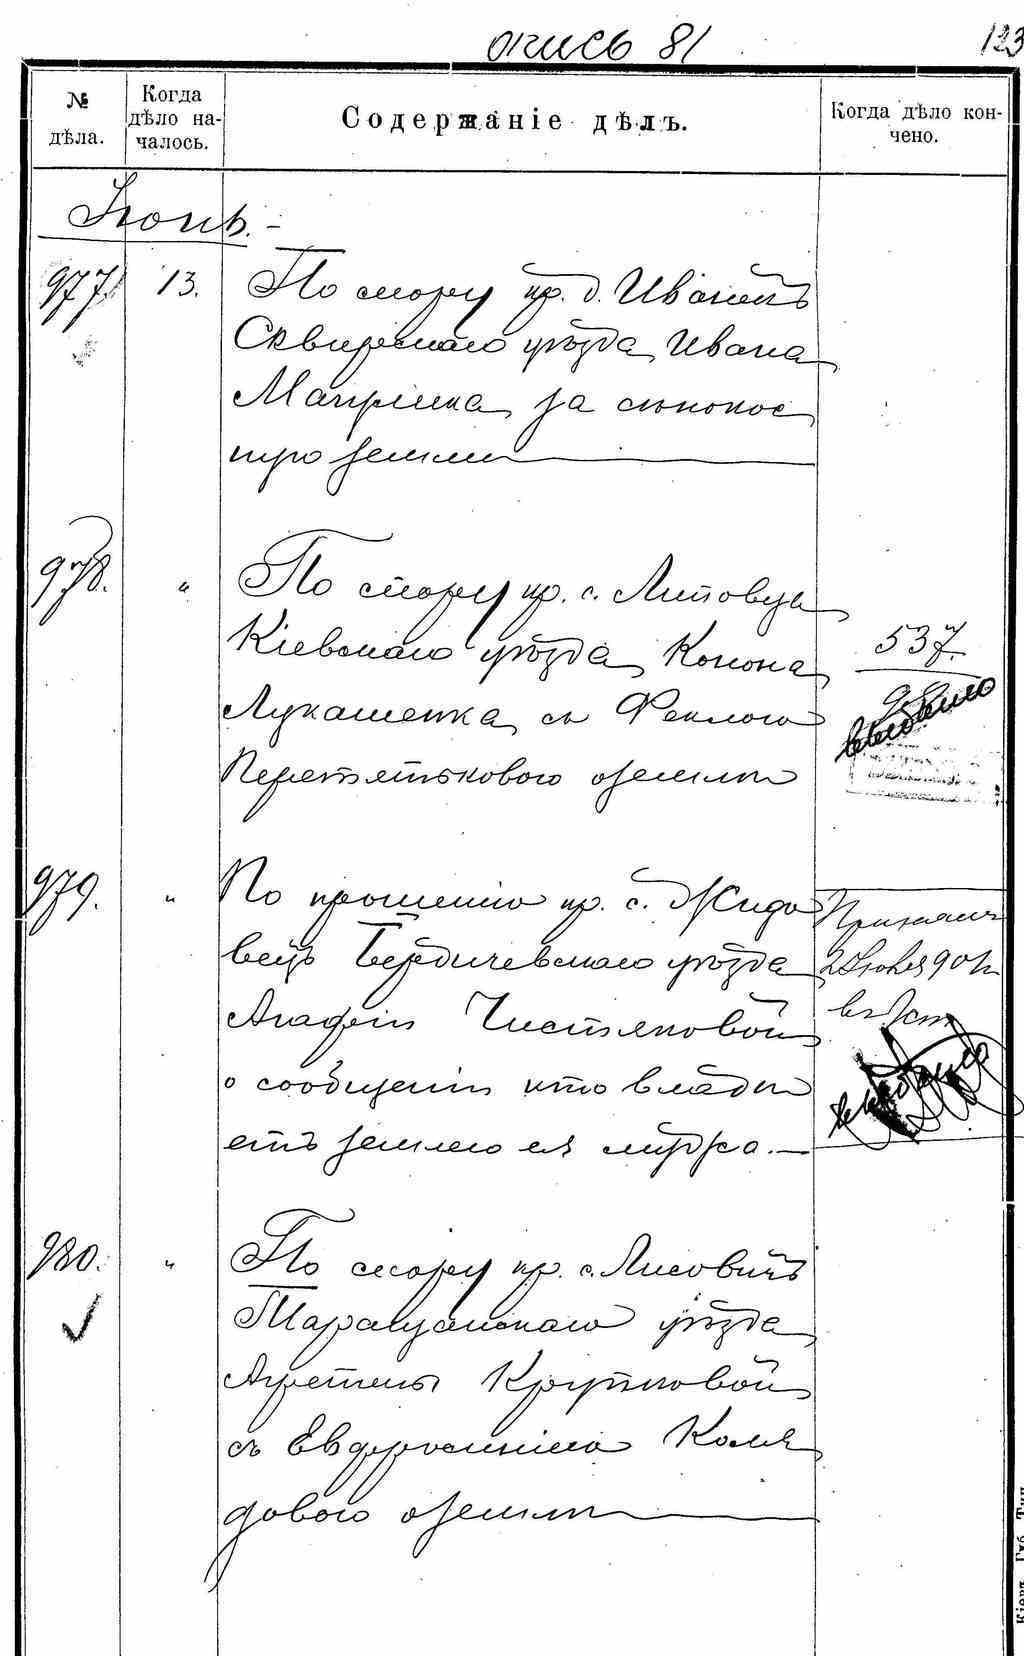 опись 81
123
№ дѣла.
Когда дѣло началось.
Содержаніе дѣлъ.
Когда дѣло кончено.
Іюнь.
977. 13. По спору кр. д. Иванокъ
Сквирскаго уѣзда, Ивана
за сѣнокос
ную землю
978. " По спору кр. с. Литовца
Кіевскаго уѣзда, Конона 537.
Лукашенка, съ Феклою
Перетятьковою о землѣ
979. " По прошенію кр. с. Жидо
вецъ Бердичевскаго уѣзда
Агафіи Чистяковой
о сообщеніи кто владѣ
етъ землею ея мужа.
980. " По спору кр. с. Лисовичъ
Таращанскаго уѣзда
Агрепины Крутковой
съ Евфросиніею Коля
довою о землѣ